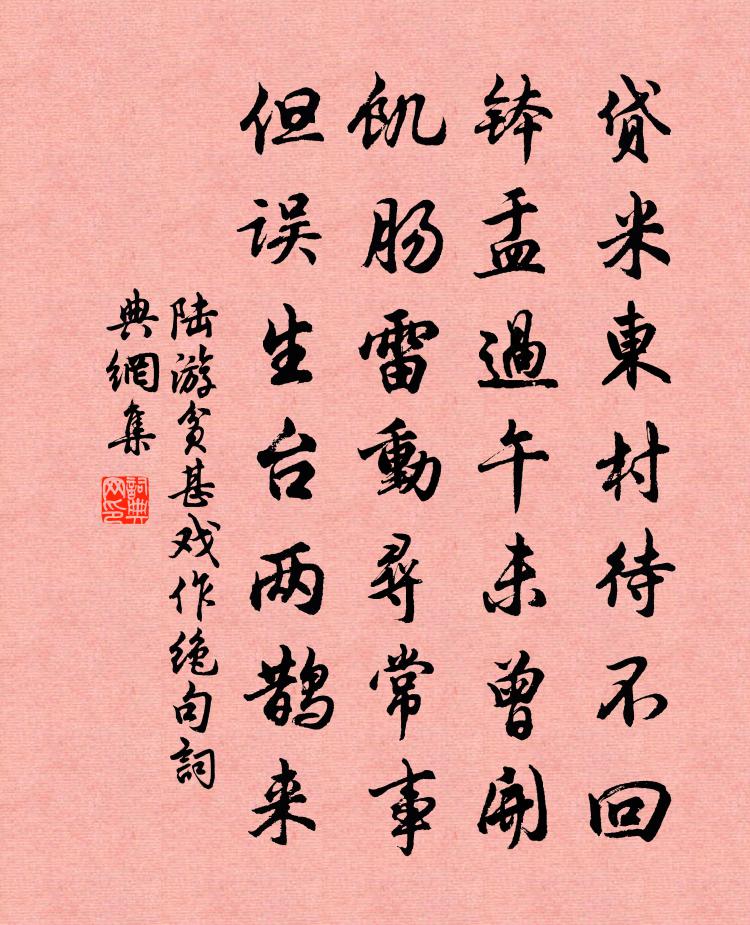 贷米東村待不回
钵盂過午未曾開
飢肠雷動尋常事
但误生台两鹊来
陆游贫甚戏作绝句詞
典網集
詞典
网印